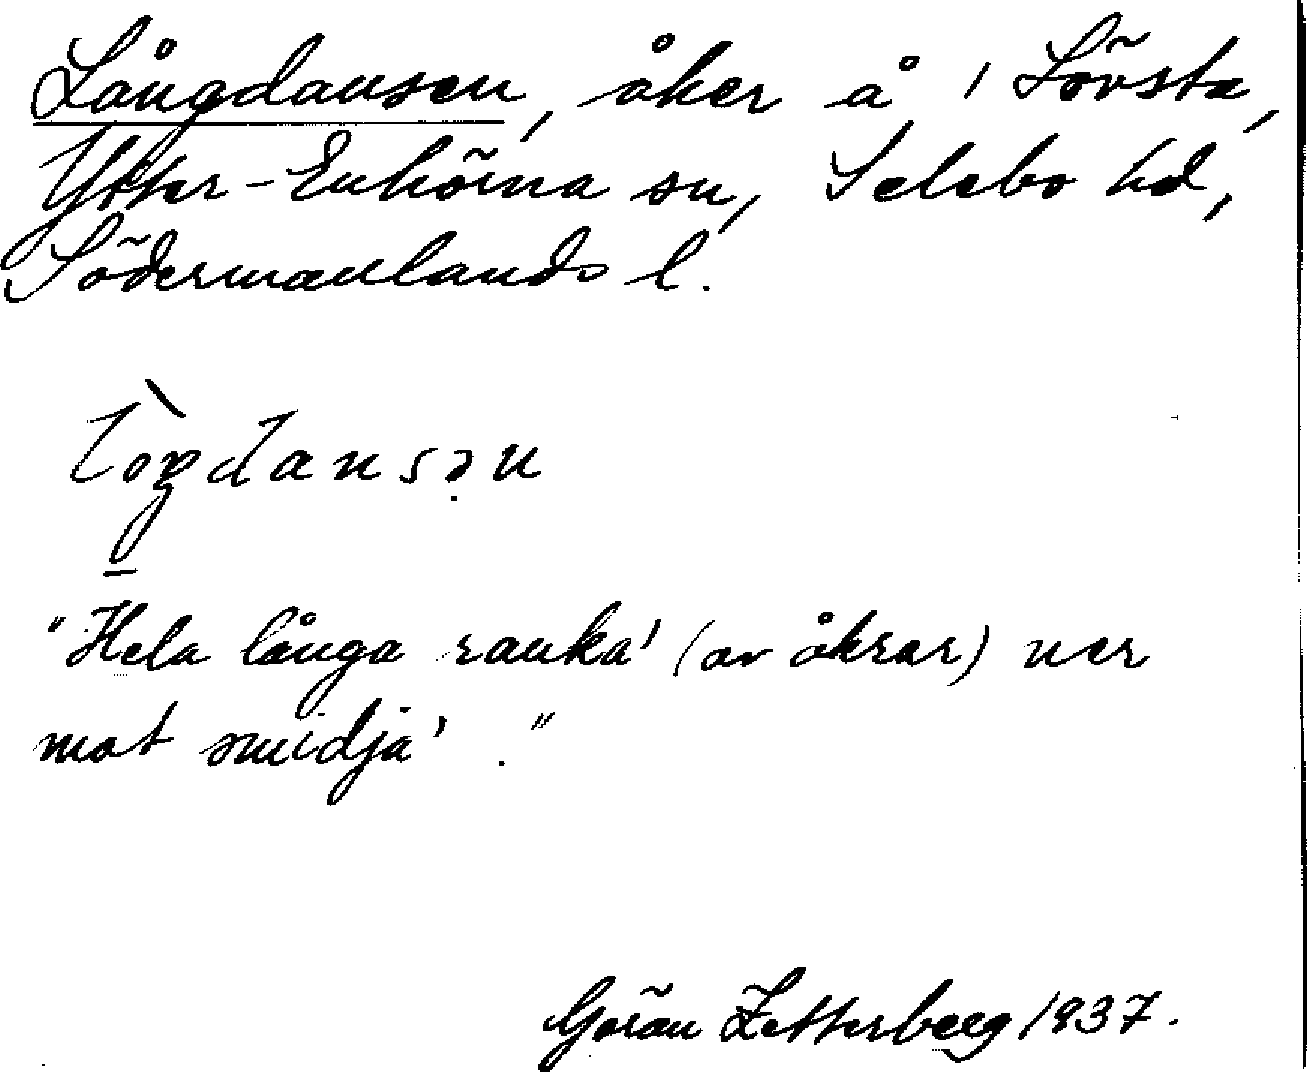 Långdansen, åker å 1 Lövsta,
Ytter-Enhörna sn, Selebo hd,
Södermanlands l.
"Hela långa ranka' (av åkrar) ner
mot smidja'."
Göran Zetterberg 1937.